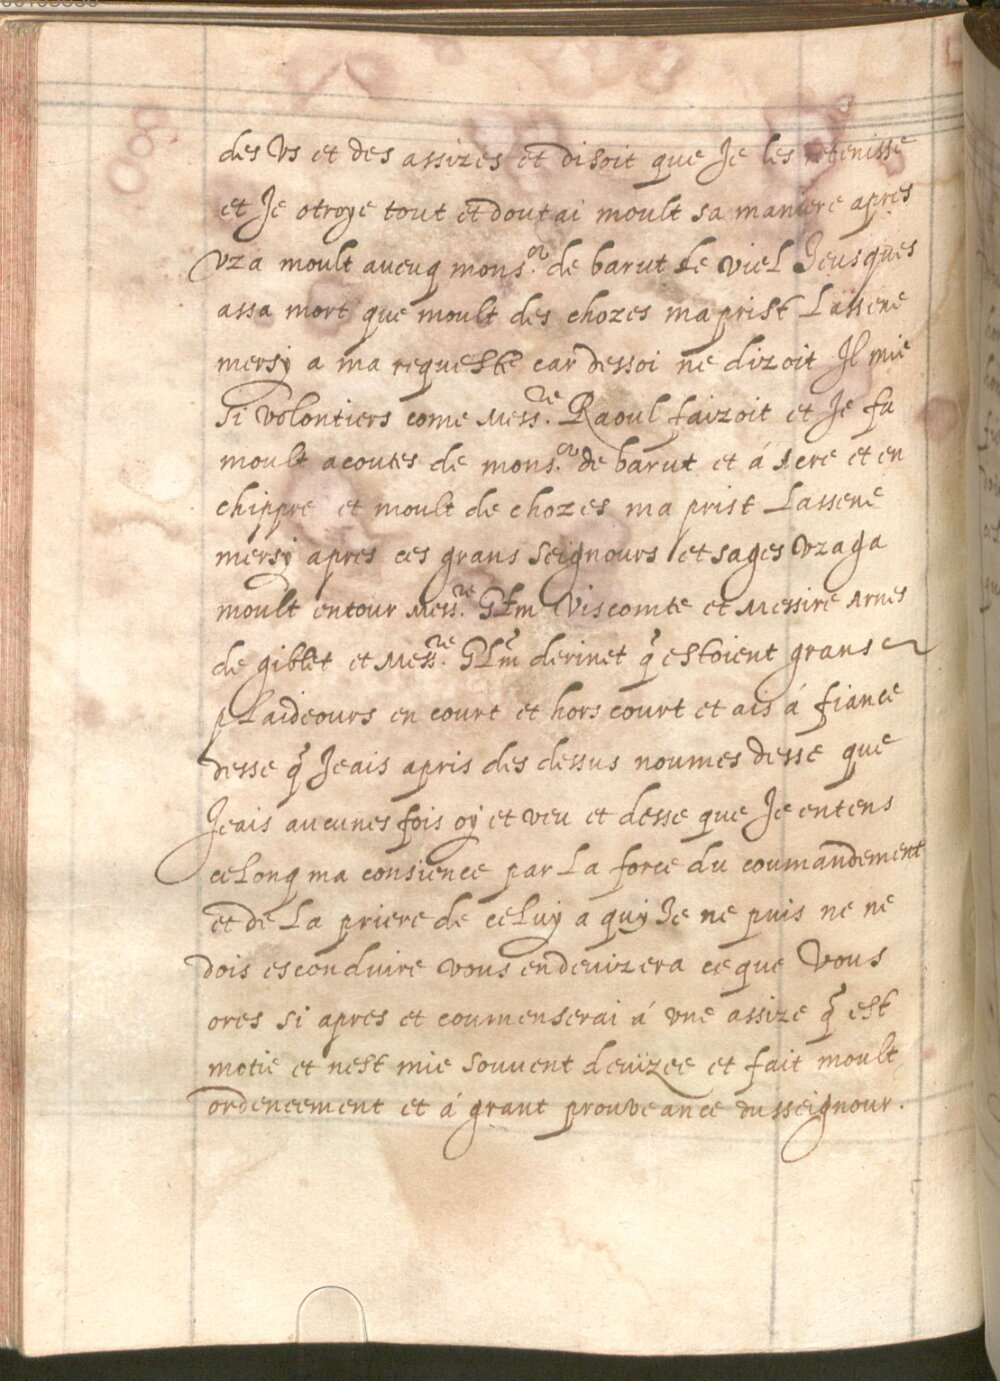 des vs et des assizes et disoit que Je les retenisse
et Je otroye tout et doutai moult sa maniere apres
vza moult aueuq mons.ʳ de barut le viel Jeusques
assa mort que moult des chozes ma prist Lassene
mersÿ a ma requeste car dessoi ne dizoit Jl mie
si volontiers come Mess.re Raoul faizoit et Je fu
moult acoutes de mons.ʳ de barut et á Acre et en
chippre et moult de chozes ma prist Lassene
mersÿ apres ces grans seignours et sages vzaga
moult entour Mess.re Glm̃ viscomte et Messire Arnes
de giblet et Mess.re Glm̃ derinet q̃ estoient grans
plaideours en court et hors court et ais á fiance
desse q̃ Jeais apris des dessus noumes desse que
Jeais aucunes fois oÿ et veu et desse que Je entens
celonq ma consience par La force du coumandement
et de La priere de celuÿ a quÿ Je ne puis ne ne
dois esconduire vous endeuizera ce que vous
ores si apres et coumenserai á vne assize q̃ est
motie et nest mie souuent deuizee et fait moult
ordencement et á grant prouveance du sseignour.